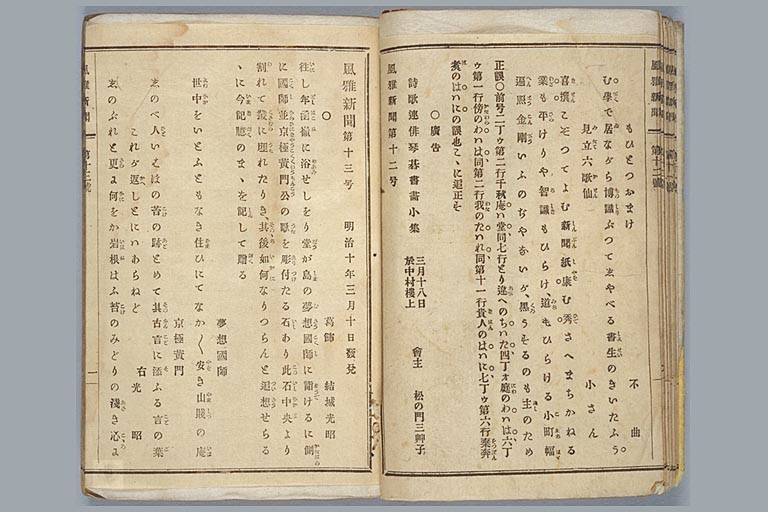 もひとつおまけ
不曲
む學で居ながら博識ぶつてゑやべる書生のきいたふう
見立六歌仙
小さん
喜撰こそつてよむ新聞紙康む秀さへまちかねる
業も平けりや智識もひらけ、道もひらける小町幅
遍照金剛いふのぢやないが、黒うそるのも主のため
正誤〇前号二丁ウ第二行千秋庵ハ堂同七行とり逹へのちハた四丁オ庭のわハは六丁
ウ第一行傍のわハは同二行我のたハれ同第十一行貴人のはハに七丁ウ第六行奏奔
者のはハにの誤也こゝに追正そ
〇廣告
詩歌連俳琴碁書畵小集
三月十八日
於中村樓上
會主
松の門三艸子
風雅新聞第十二号
風雅新聞
第十二號
風雅新聞第十三号
明治十年三月十日發兌
〇
葛飾
結城光昭
往し年函嶺に浴せしをり堂が島の夢想國師に詣けるに側
に國師並京極黄門公の哥を彫付たる石あり此石中央より
割れて叢に埋れたりき、其後如何なりつらんと追想せらる
ゝに今記臆のまゝを記して贈る
夢想國師
世中をいとふともなき住ひにてなか〱安き山賤の庵
京極黄門
ゑのべ人いくほの苔の跡とめて其古言に添ふる言の葉
これが返しとにハあらねど
右光昭
ゑのぶれと更よ何をか岩根はふ苔のみどりの淺き心よ
風雅新聞
第十三號
一